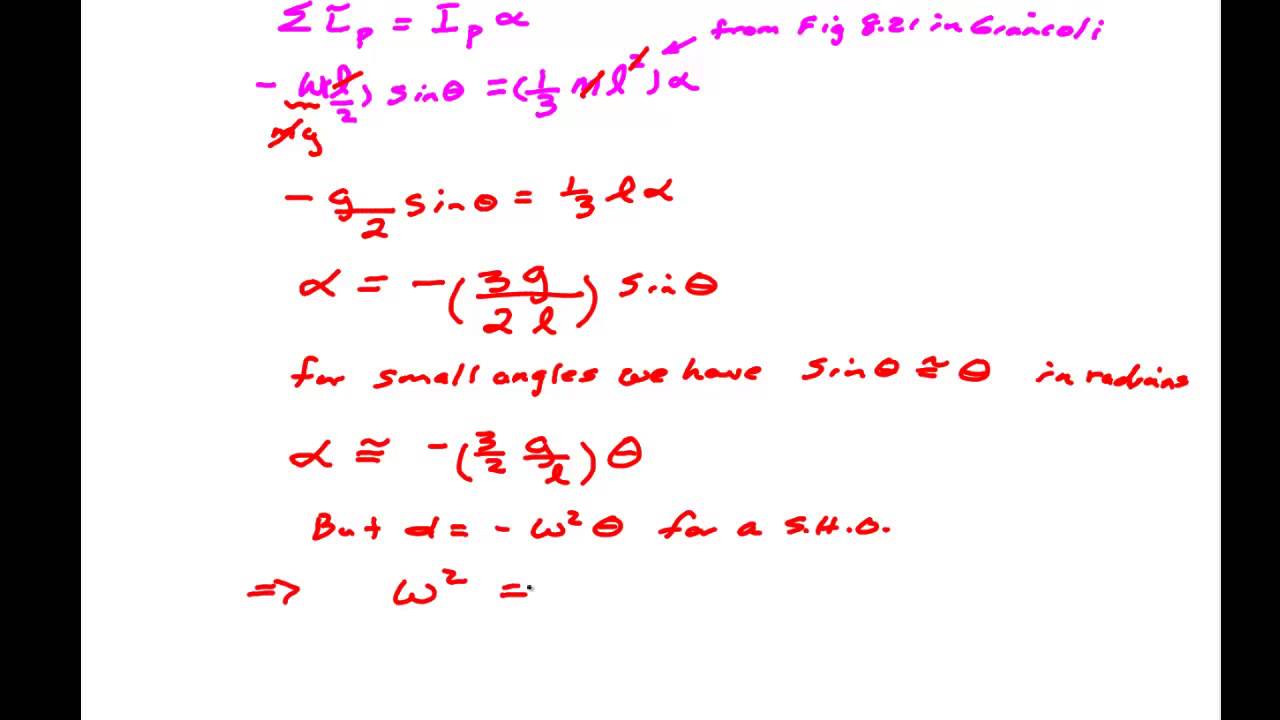 Στ_p = I_p α
from Fig 8.21 in Giancoli
- w(l/2) sinθ = (1/3 m l²) α
mg
- g/2 sinθ = 1/3 l α
α = - (3g/2l) sinθ
for small angles we have sinθ ≅ θ in radians
α ≅ - (3/2 g/l) θ
But α = - ω² θ for a S.H.O.
⇒ ω² =